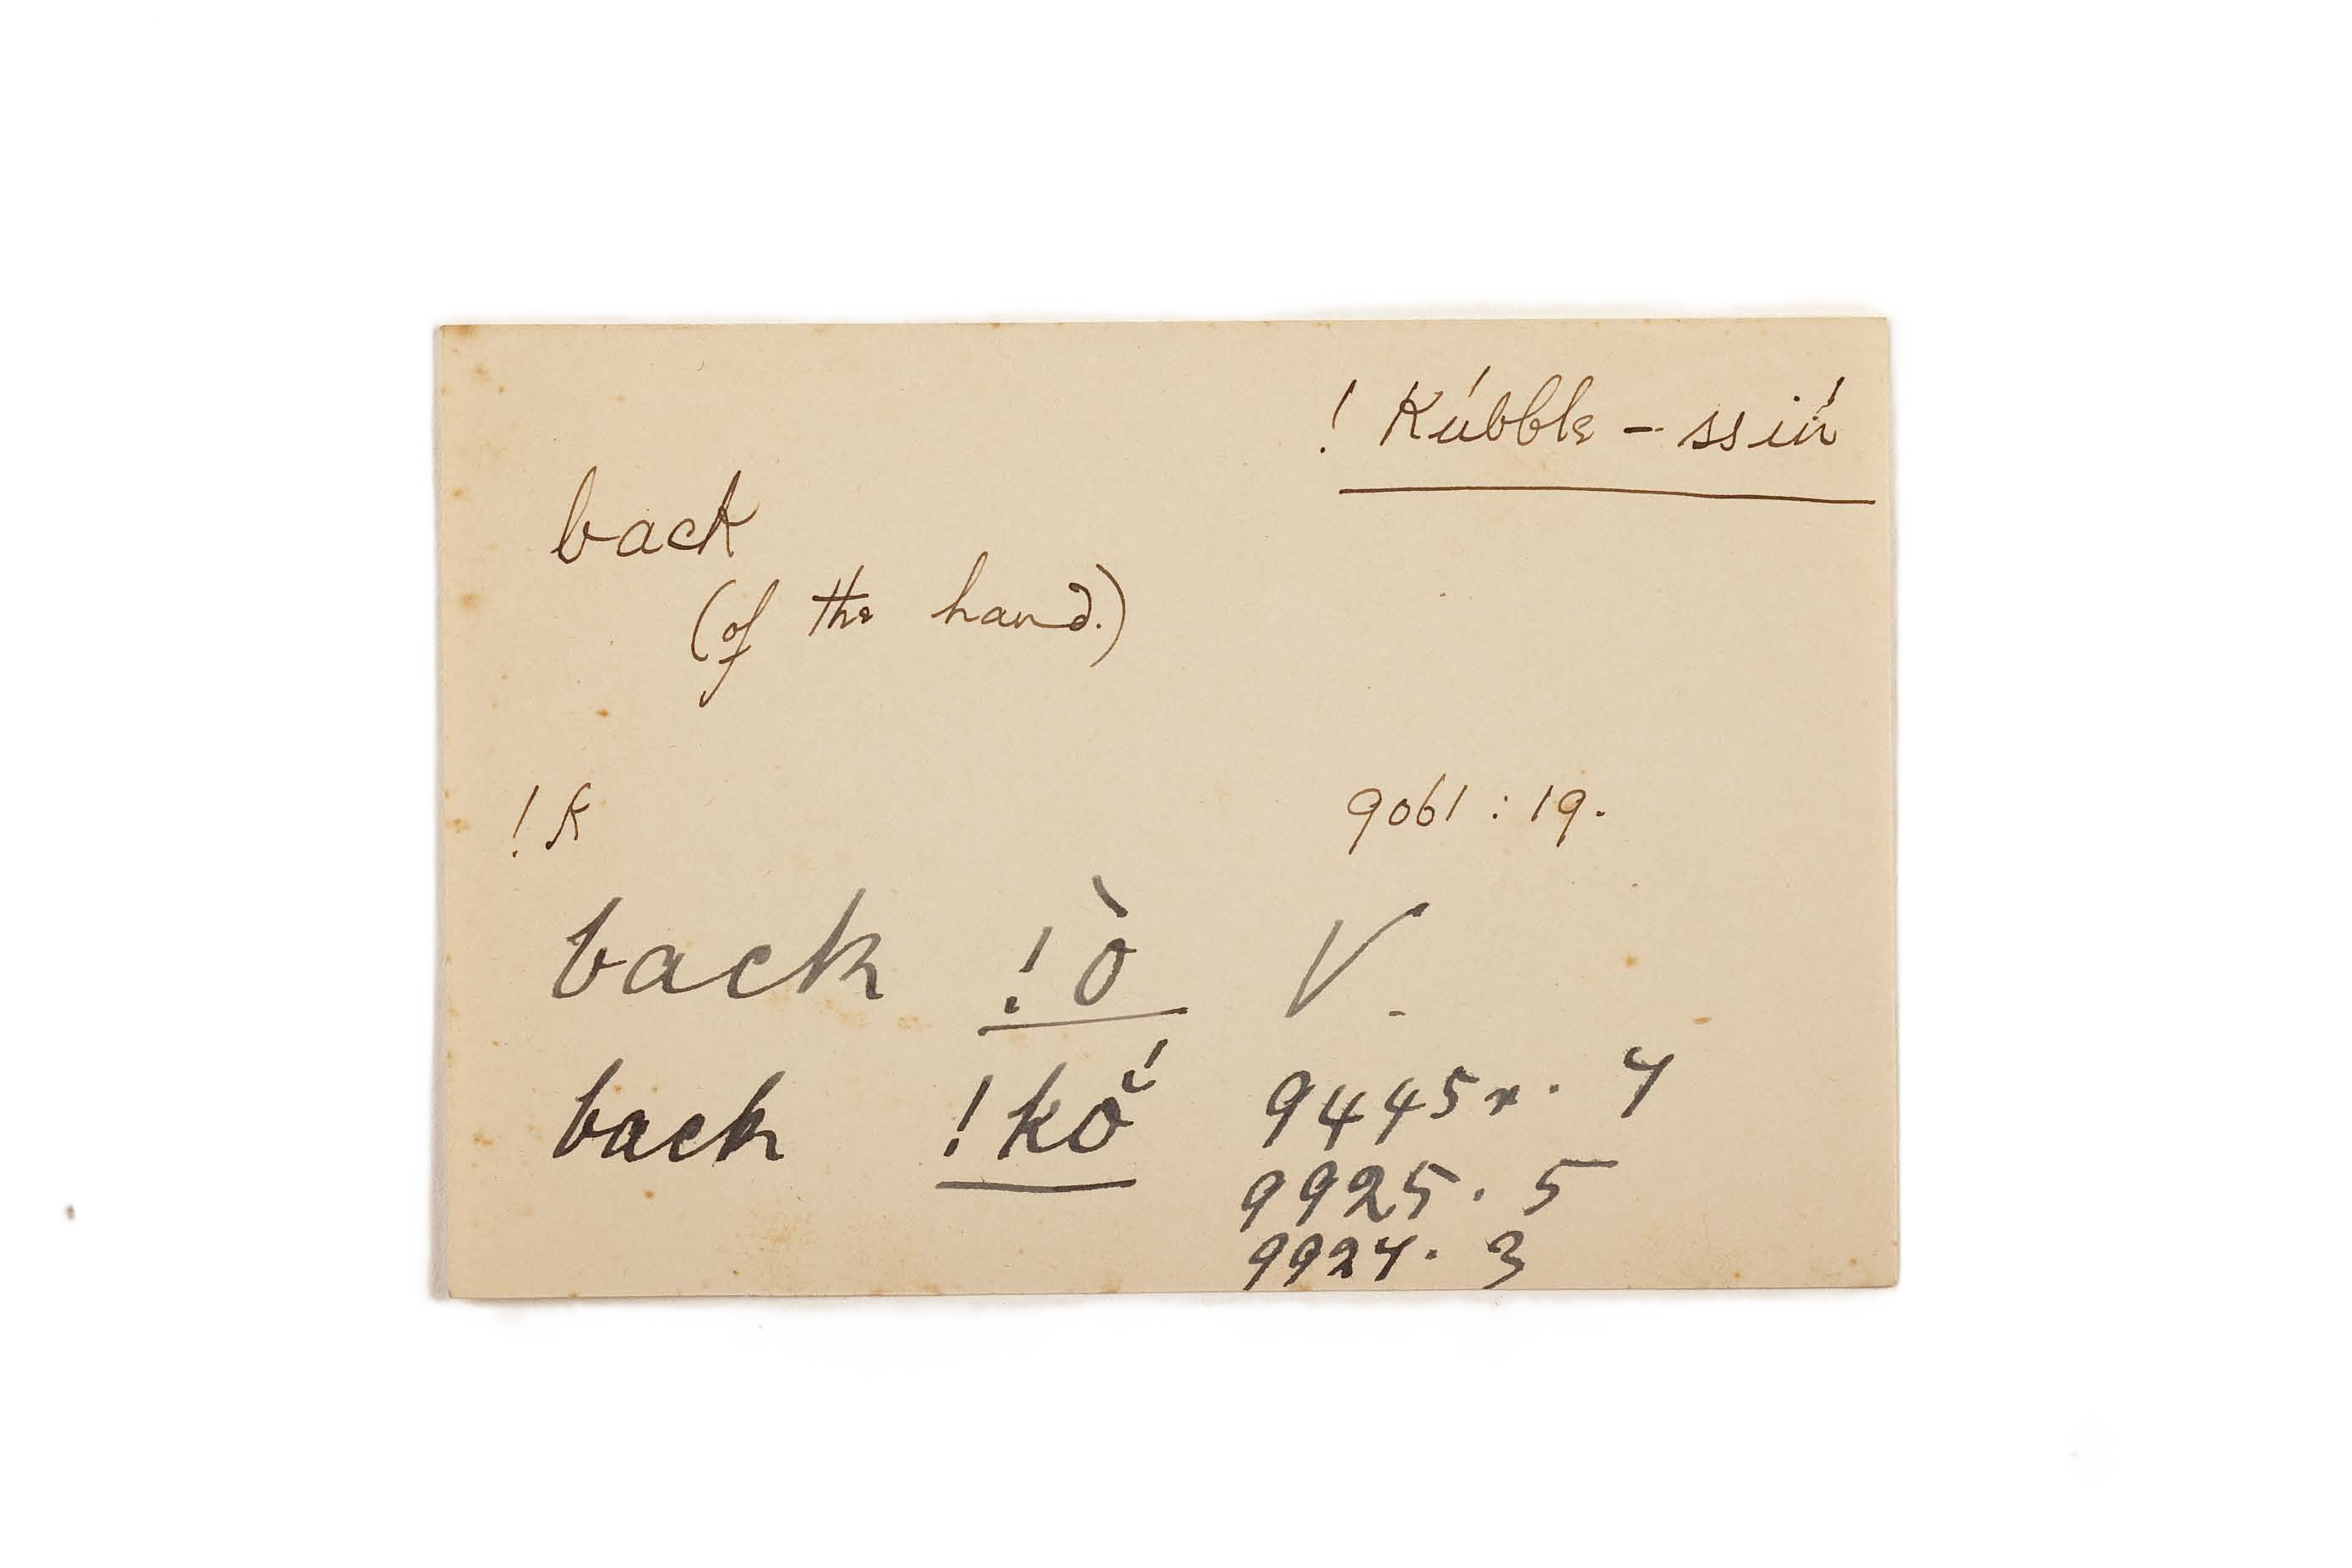 ! Kúbble - ssiń
back
(of the hand.)
! k 9061 : 19.
back !ò V.
back !kǒ́ 9445x. 7
9925. 5
9927. 3